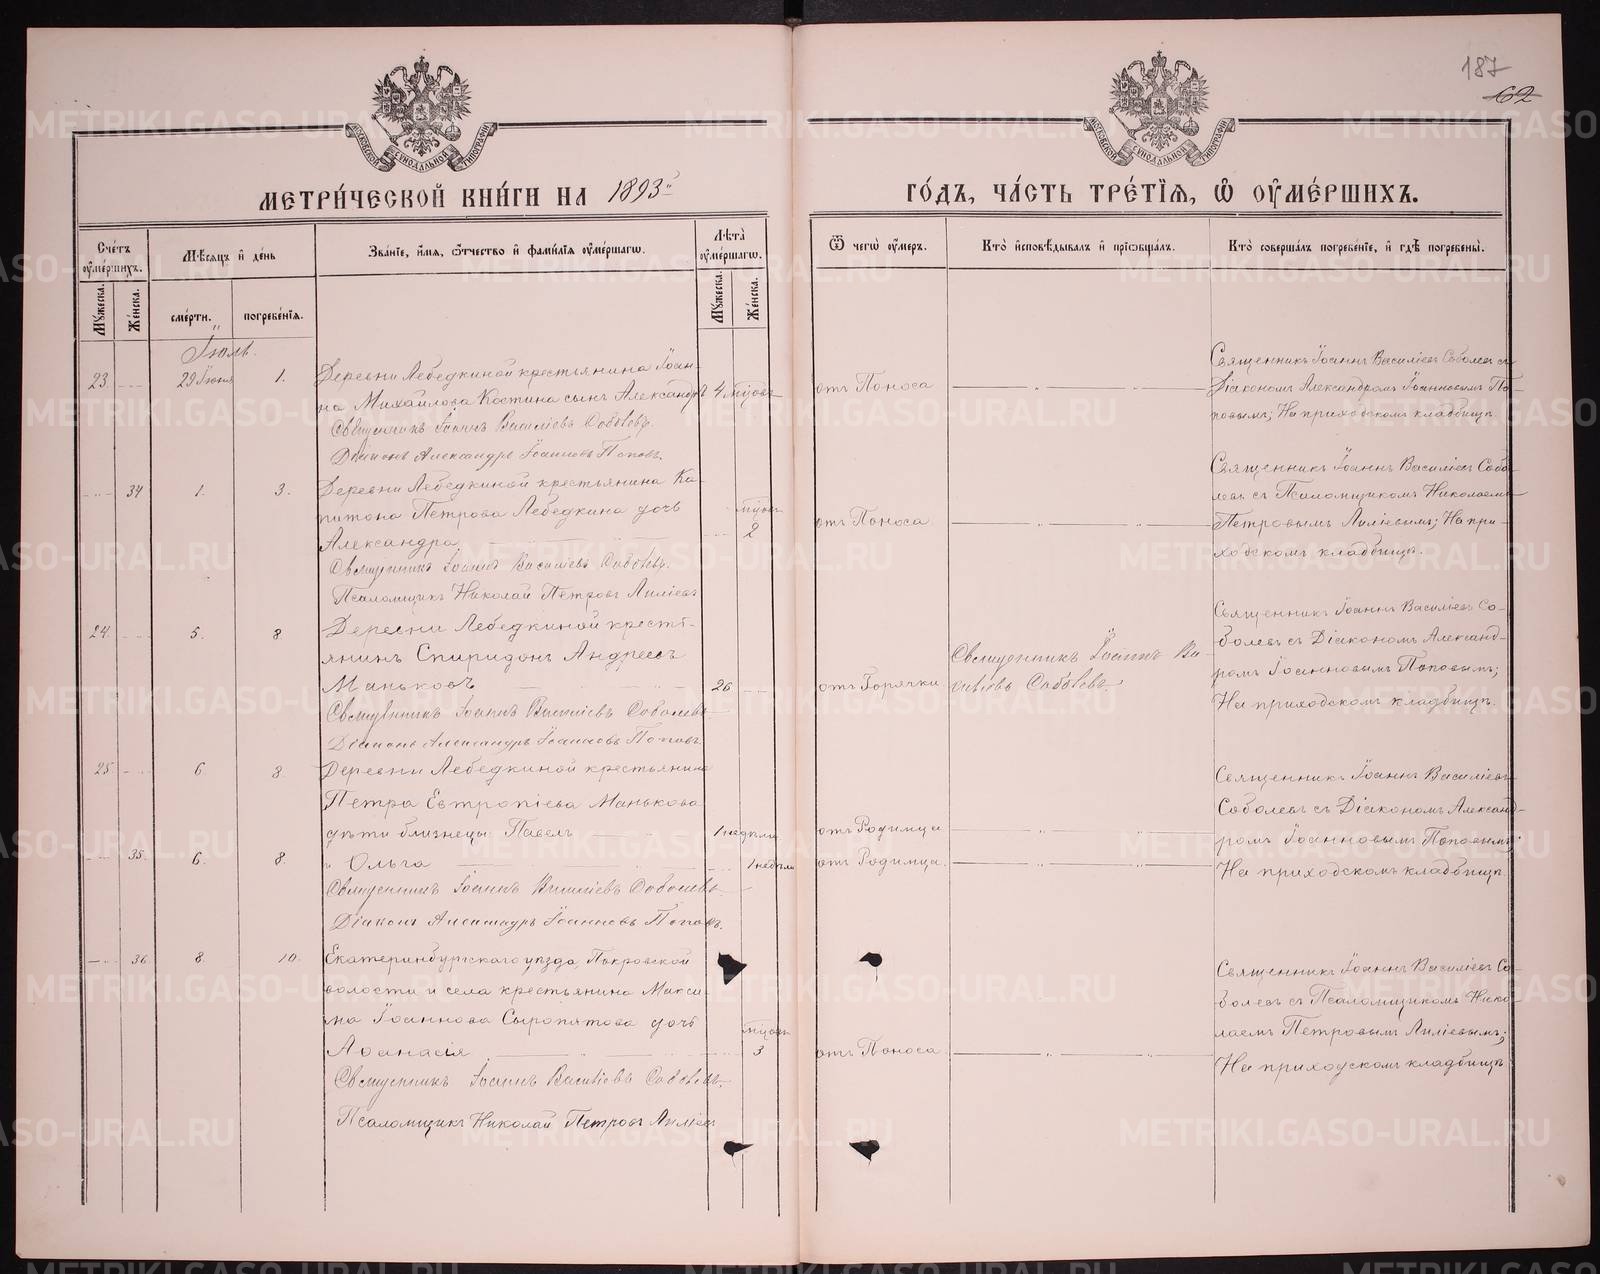 187
62
МЕТРИ́ЧЕСКОЙ КНИ́ГИ НА 1893й
ГО́ДЪ, ЧА́СТЬ ТРЕ́ТІѦ, Ѿ ОУМЕ́РШИХЪ.
МОСКОВСКОЙ СѴНОДАЛЬНОЙ ТИПОГРАФІИ
МОСКОВСКОЙ СѴНОДАЛЬНОЙ ТИПОГРАФІИ
Сче́тъ оуме́ршихъ.
Мѣ́сѧцъ и де́нь
Зва́ніе, и́мѧ, ѻ҆́тчество и фами́лія оуме́ршагѡ.
Лѣ́та оуме́ршагѡ.
Ѿ чегѡ̀ оу́меръ.
Кто̀ исповѣ́дывалъ и прїѻбща́лъ.
Кто̀ соверша́лъ погребе́ніе, и гдѣ̀ погребены̀.
Мꙋ́жеска.
Же́нска.
сме́рти.
погребе́нія.
Мꙋ́жеска.
Же́нска.
Іюль.
23. 29 Іюня 1. Деревни Лебедкиной крестьянина Іоан-
на Михайлова Костина сынъ Александръ 4 мѣсяц.
Священникъ Іоаннъ Василіевъ Соболевъ.
Діаконъ Александръ Іоанновъ Поповъ.
отъ Поноса
Священникъ Іоаннъ Василіевъ Соболевъ съ
Діакономъ Александромъ Іоанновымъ По-
повымъ; На приходскомъ кладбищѣ.
34 1. 3. Деревни Лебедкиной крестьянина Ка-
питона Петрова Лебедкина дочь
Александра 2
Священникъ Іоаннъ Василіевъ Соболевъ.
Псаломщикъ Николай Петровъ Лиліевъ
отъ Поноса
Священникъ Іоаннъ Василіевъ Собо-
левъ съ Псаломщикомъ Николаемъ
Петровымъ Лиліевымъ; На при-
ходскомъ кладбищѣ.
24. 5. 8. Деревни Лебедкиной кресть-
янинъ Спиридонъ Андреевъ
Маньковъ 26
Священникъ Іоаннъ Василіевъ Соболевъ
Діаконъ Александръ Іоанновъ Поповъ.
отъ Горячки
Священникъ Іоаннъ Ва-
силіевъ Соболевъ.
Священникъ Іоаннъ Василіевъ Со-
болевъ съ Діакономъ Александ-
ромъ Іоанновымъ Поповымъ;
На приходскомъ кладбищѣ.
25 6. 8. Деревни Лебедкиной крестьянина
Петра Евтропіева Манькова
дѣти близнецы Павелъ 1 недѣли
35. 6. 8. Ольга 1 недѣли
Священникъ Іоаннъ Василіевъ Соболевъ
Діаконъ Александръ Іоанновъ Поповъ.
отъ Родимца
отъ Родимца.
Священникъ Іоаннъ Василіевъ
Соболевъ съ Діакономъ Александ-
ромъ Іоанновымъ Поповымъ;
На приходскомъ кладбищѣ
36 8. 10. Екатеринбургскаго уѣзда, Покровской
волости и села крестьянина Макси-
ма Іоаннова Сыропятова дочь
Аѳанасія 3
Священникъ Іоаннъ Василіевъ Соболевъ.
Псаломщикъ Николай Петровъ Лиліевъ
отъ Поноса
Священникъ Іоаннъ Василіевъ Со-
болевъ съ Псаломщикомъ Нико-
лаемъ Петровымъ Лиліевымъ;
На приходскомъ кладбищѣ.
METRIKI.GASO-URAL.RU